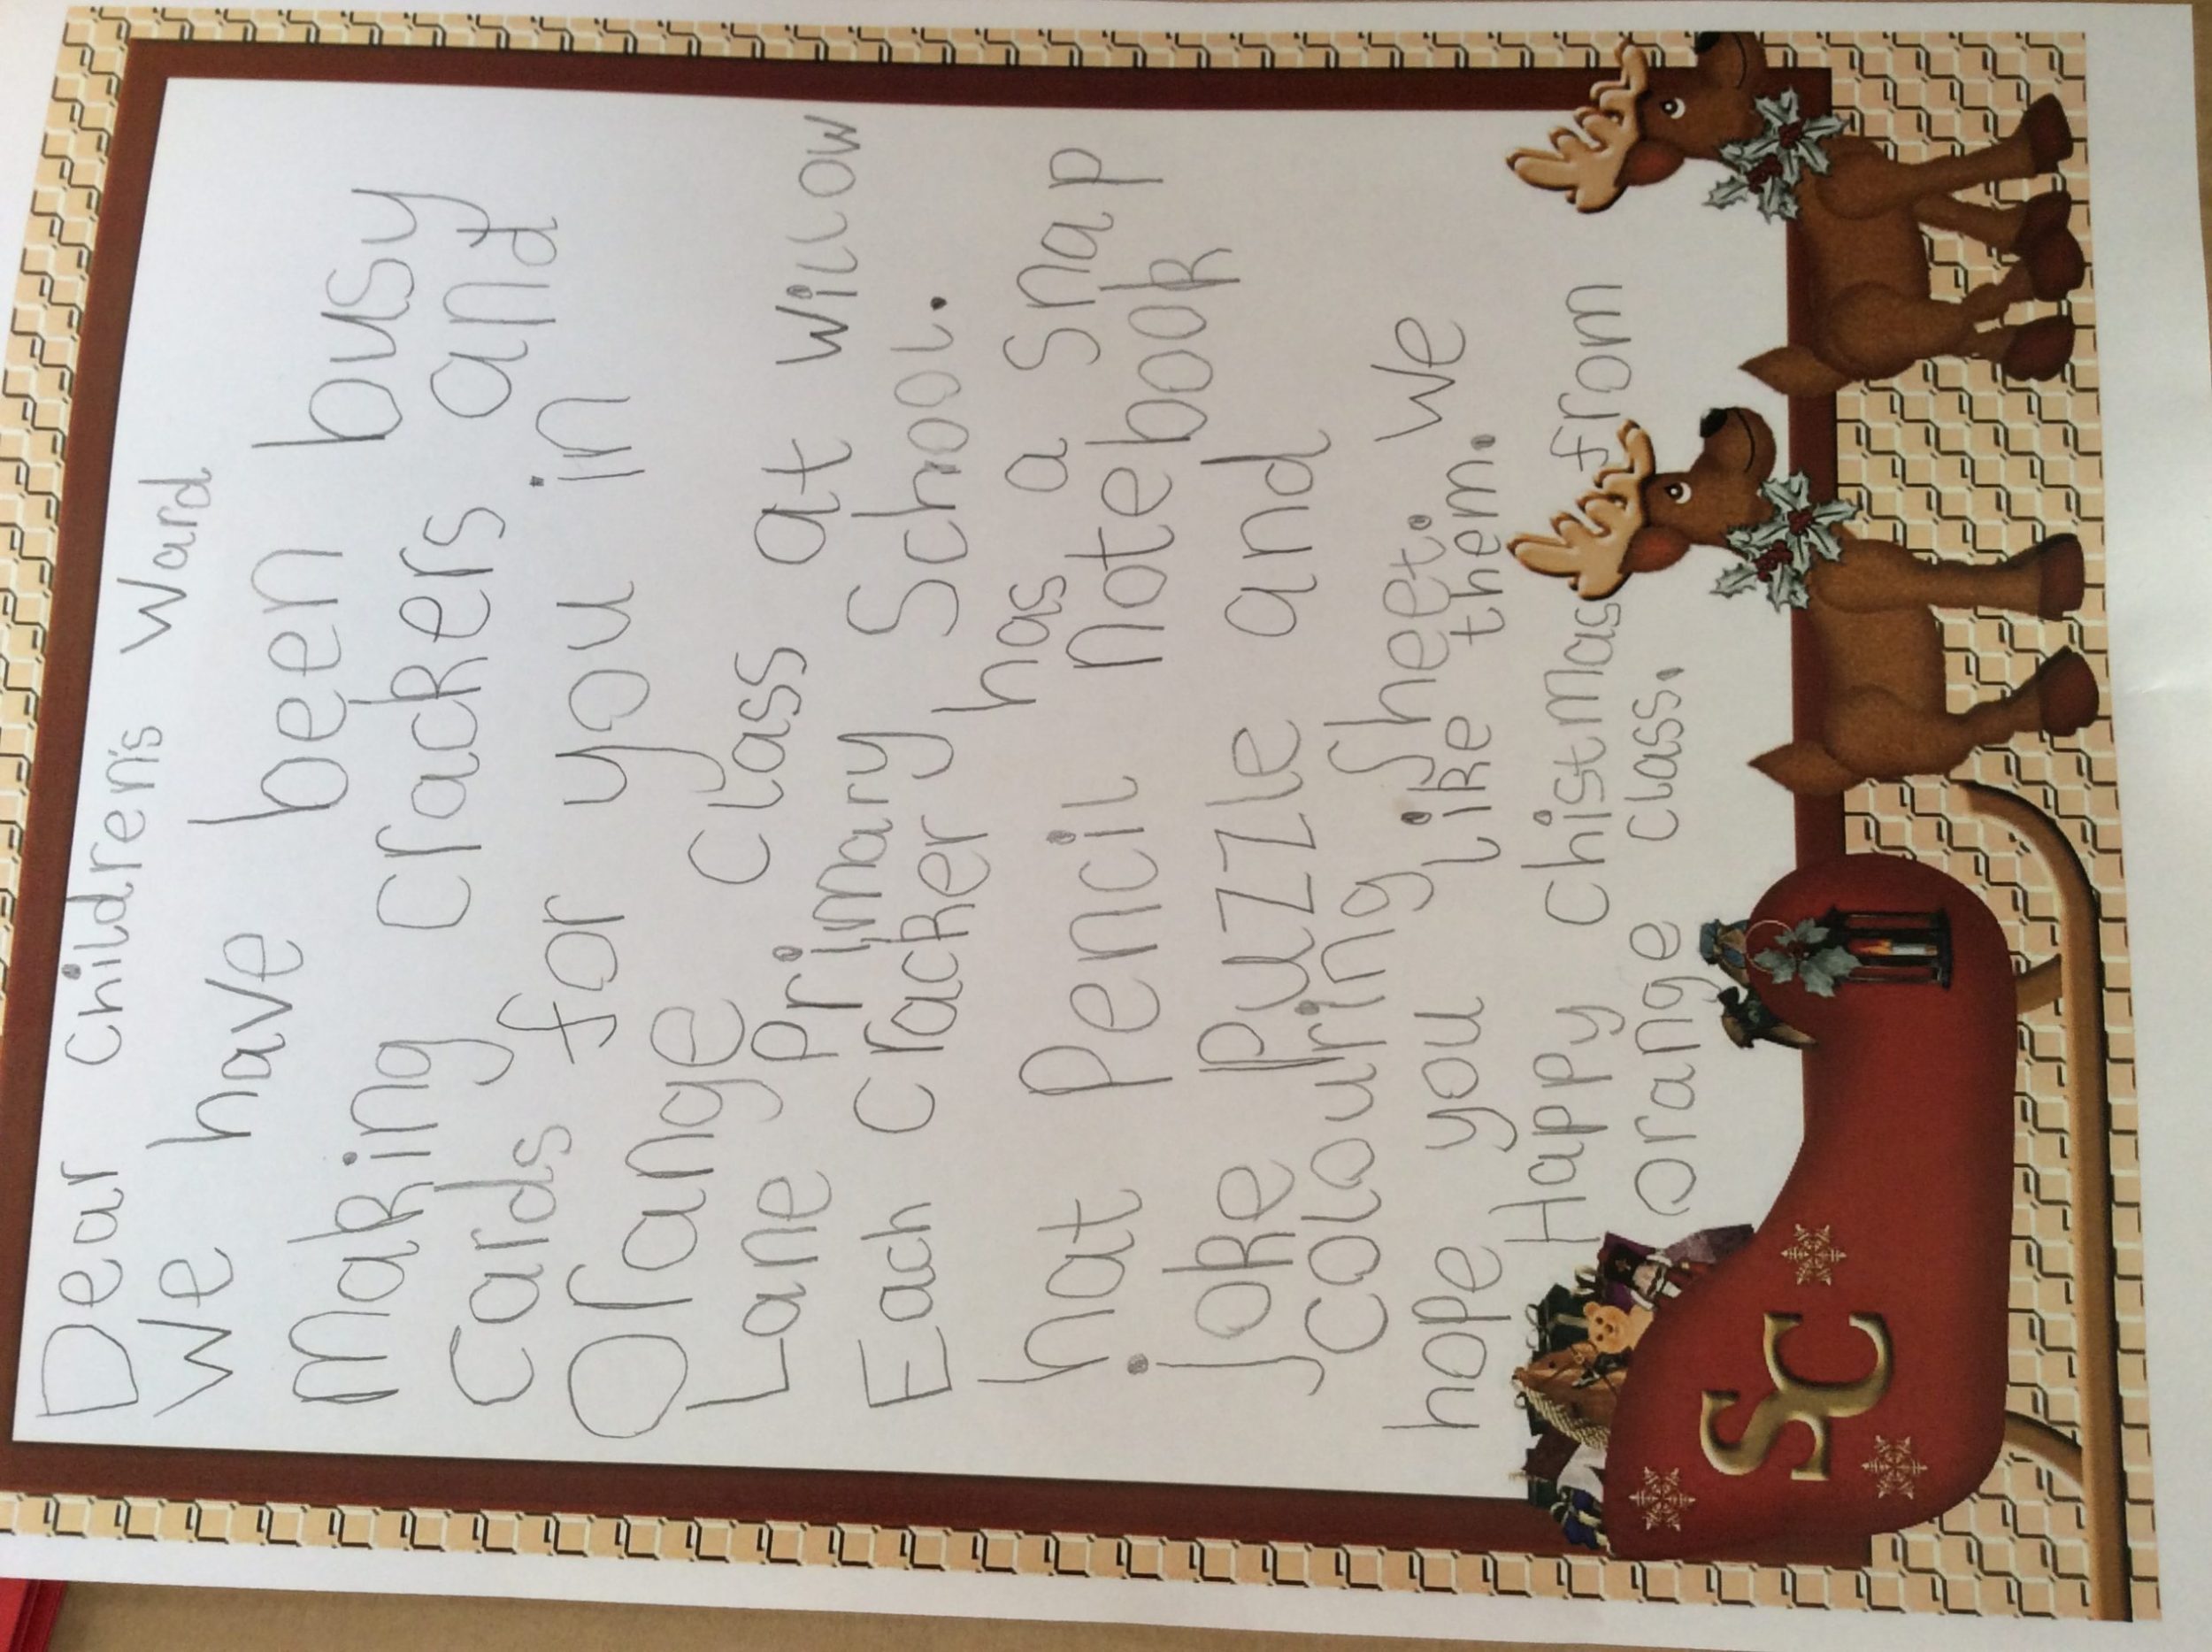 Dear children's ward
We have been busy
making crackers and
cards for you in
Orange class at Willow
Lane Primary School.
Each cracker has a snap
hat Pencil notebook
joke Puzzle and
colouring sheet. We
hope you like them.
Happy chistmas from
orange class.
SC